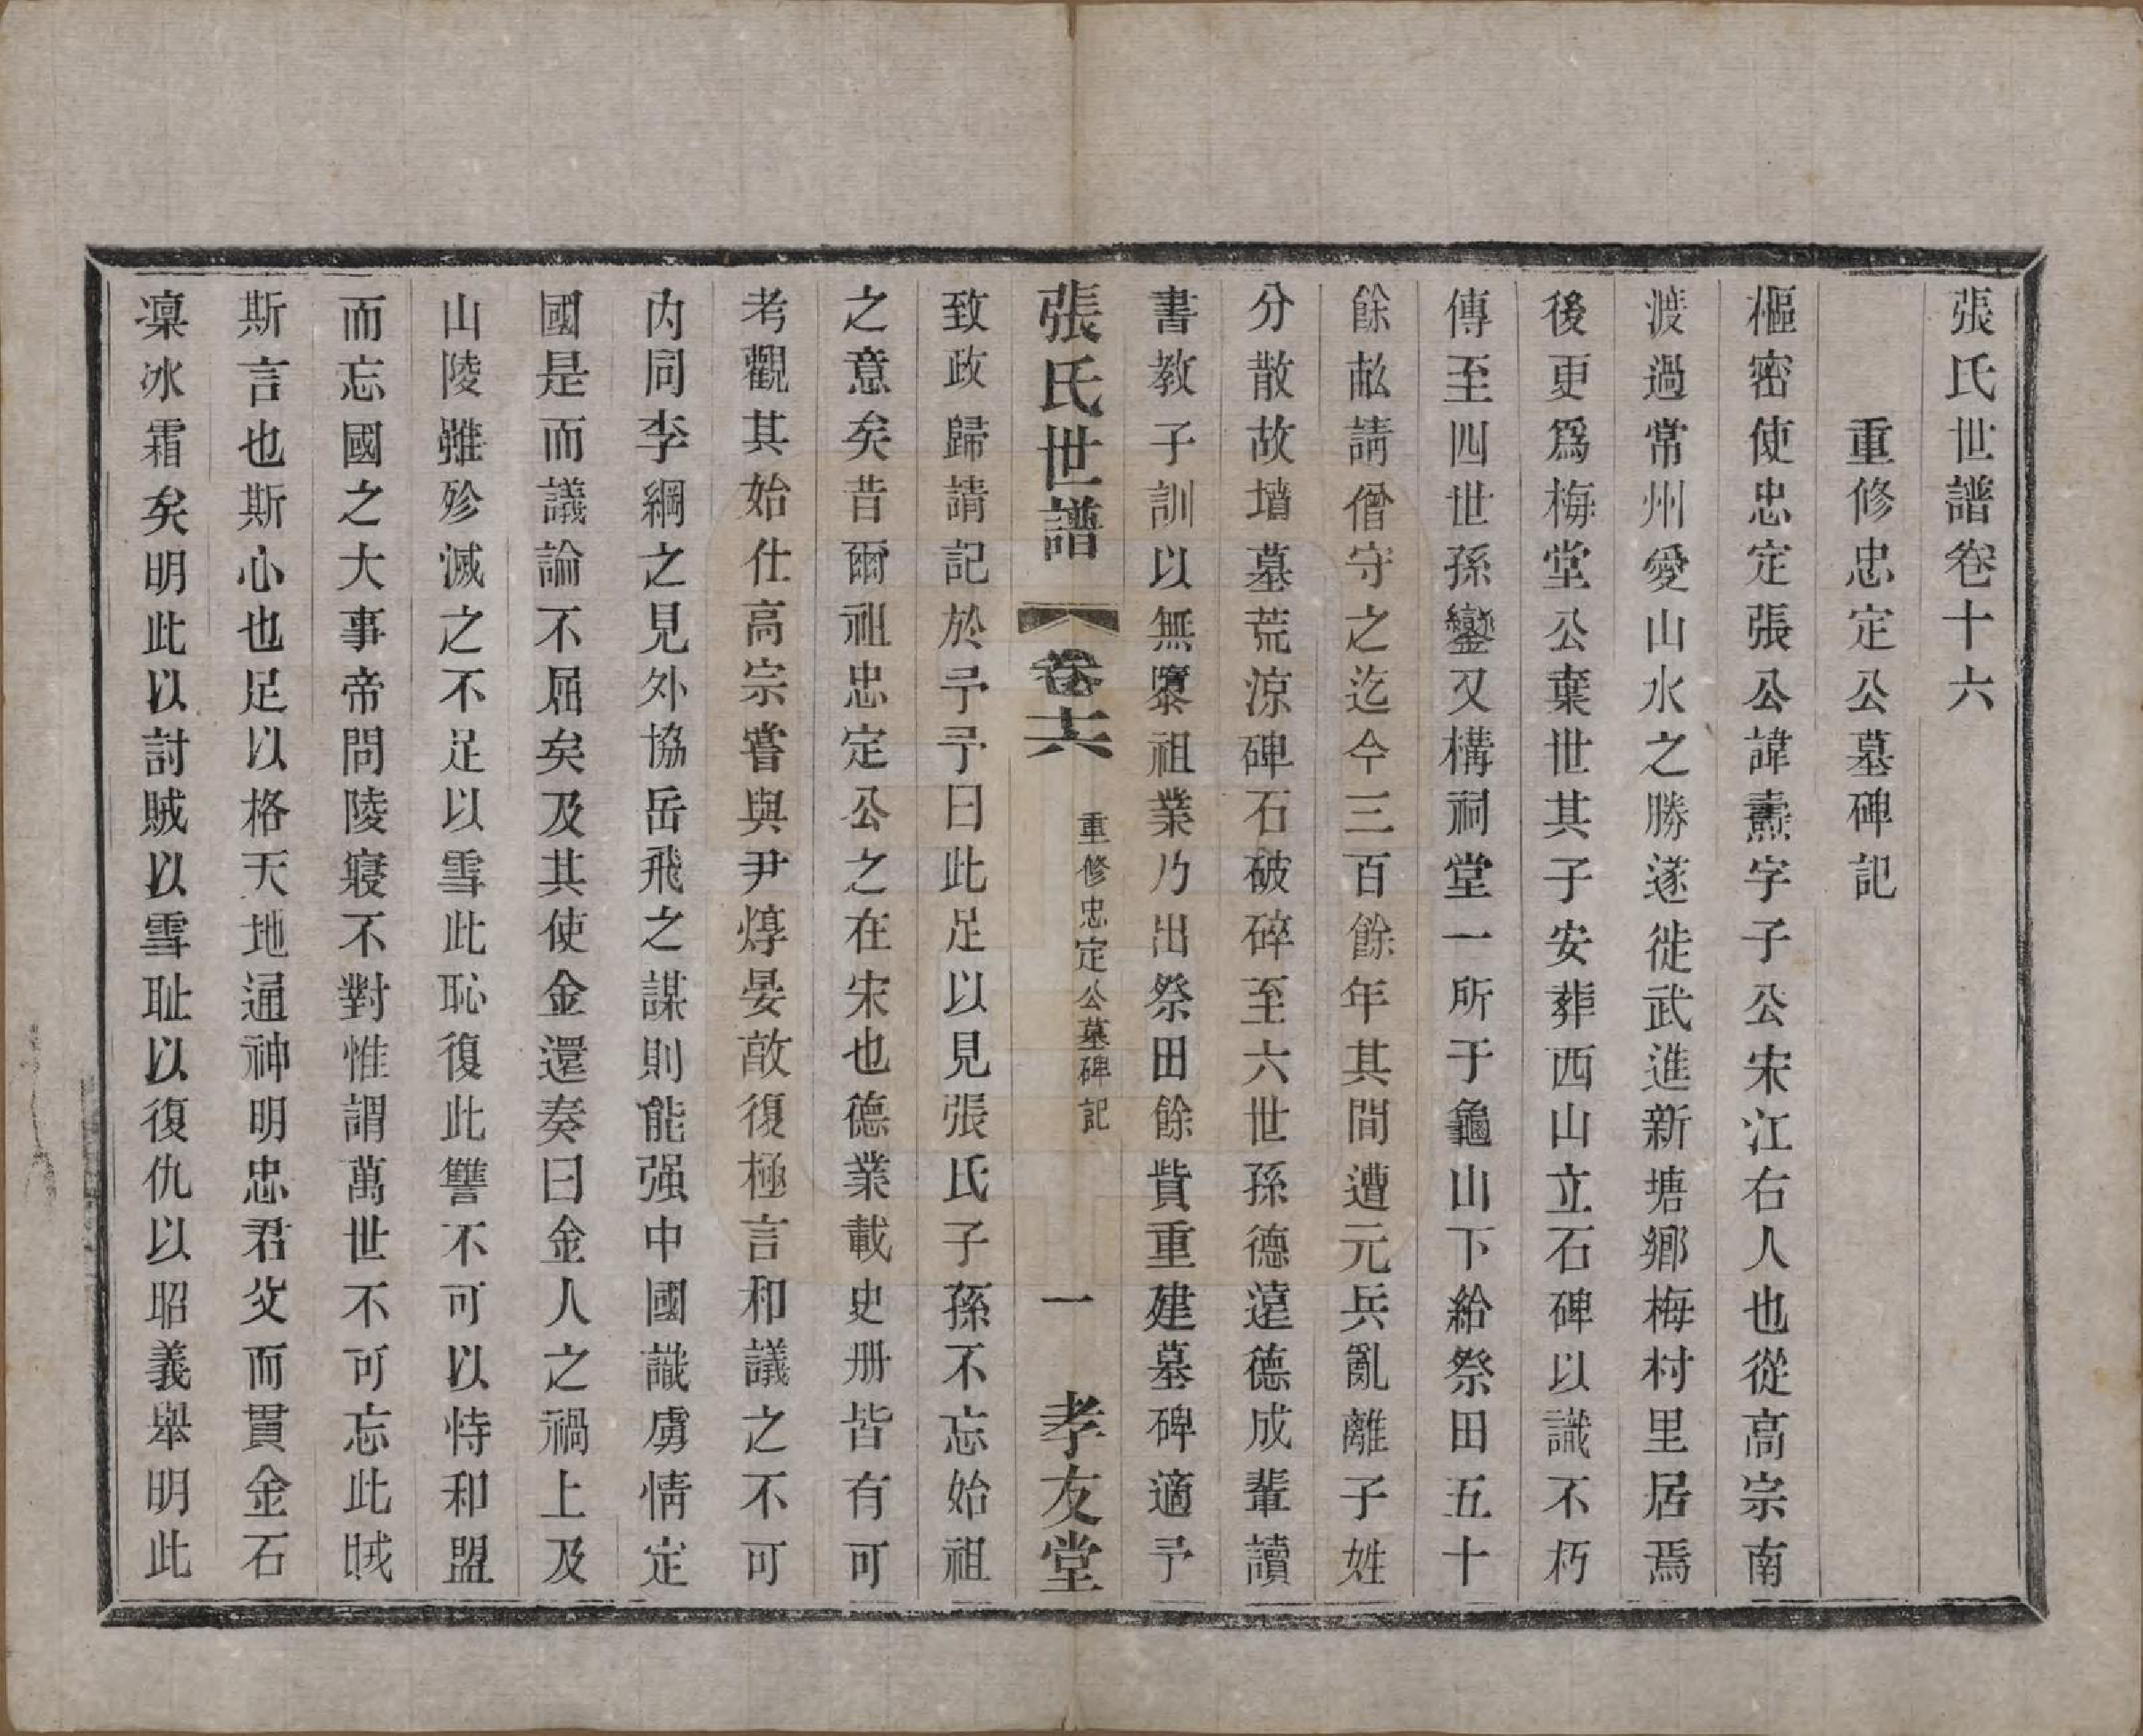 張氏世譜卷十六
重修忠定公墓碑記
樞密使忠定張公諱燾字子公宋江右人也從高宗南
渡過常州愛山水之勝遂徙武進新塘鄉梅村里居焉
後更爲梅堂公棄世其子安葬西山立石碑以識不朽
傳至四世孫鑾又構祠堂一所于龜山下給祭田五十
餘畝請僧守之迄今三百餘年其間遭元兵亂離子姓
分散故墳墓荒涼碑石破碎至六世孫德遠德成輩讀
書教子訓以無隳祖業乃出祭田餘貲重建墓碑適予
張氏世譜 卷十六 重修忠定公墓碑記 一 孝友堂
致政歸請記於予予曰此足以見張氏子孫不忘始祖
之意矣昔爾祖忠定公之在宋也德業載史册皆有可
考觀其始仕高宗嘗與尹焞晏敵復極言和議之不可
内同李綱之見外協岳飛之謀則能强中國讋虜情定
國是而議論不屈矣及其使金還奏曰金人之禍上及
山陵雖殄滅之不足以雪此恥復此讐不可以恃和盟
而忘國之大事帝問陵寢不對惟謂萬世不可忘此賊
斯言也斯心也足以格天地通神明忠君父而貫金石
凜冰霜矣明此以討賊以雪耻以復仇以昭義舉明此